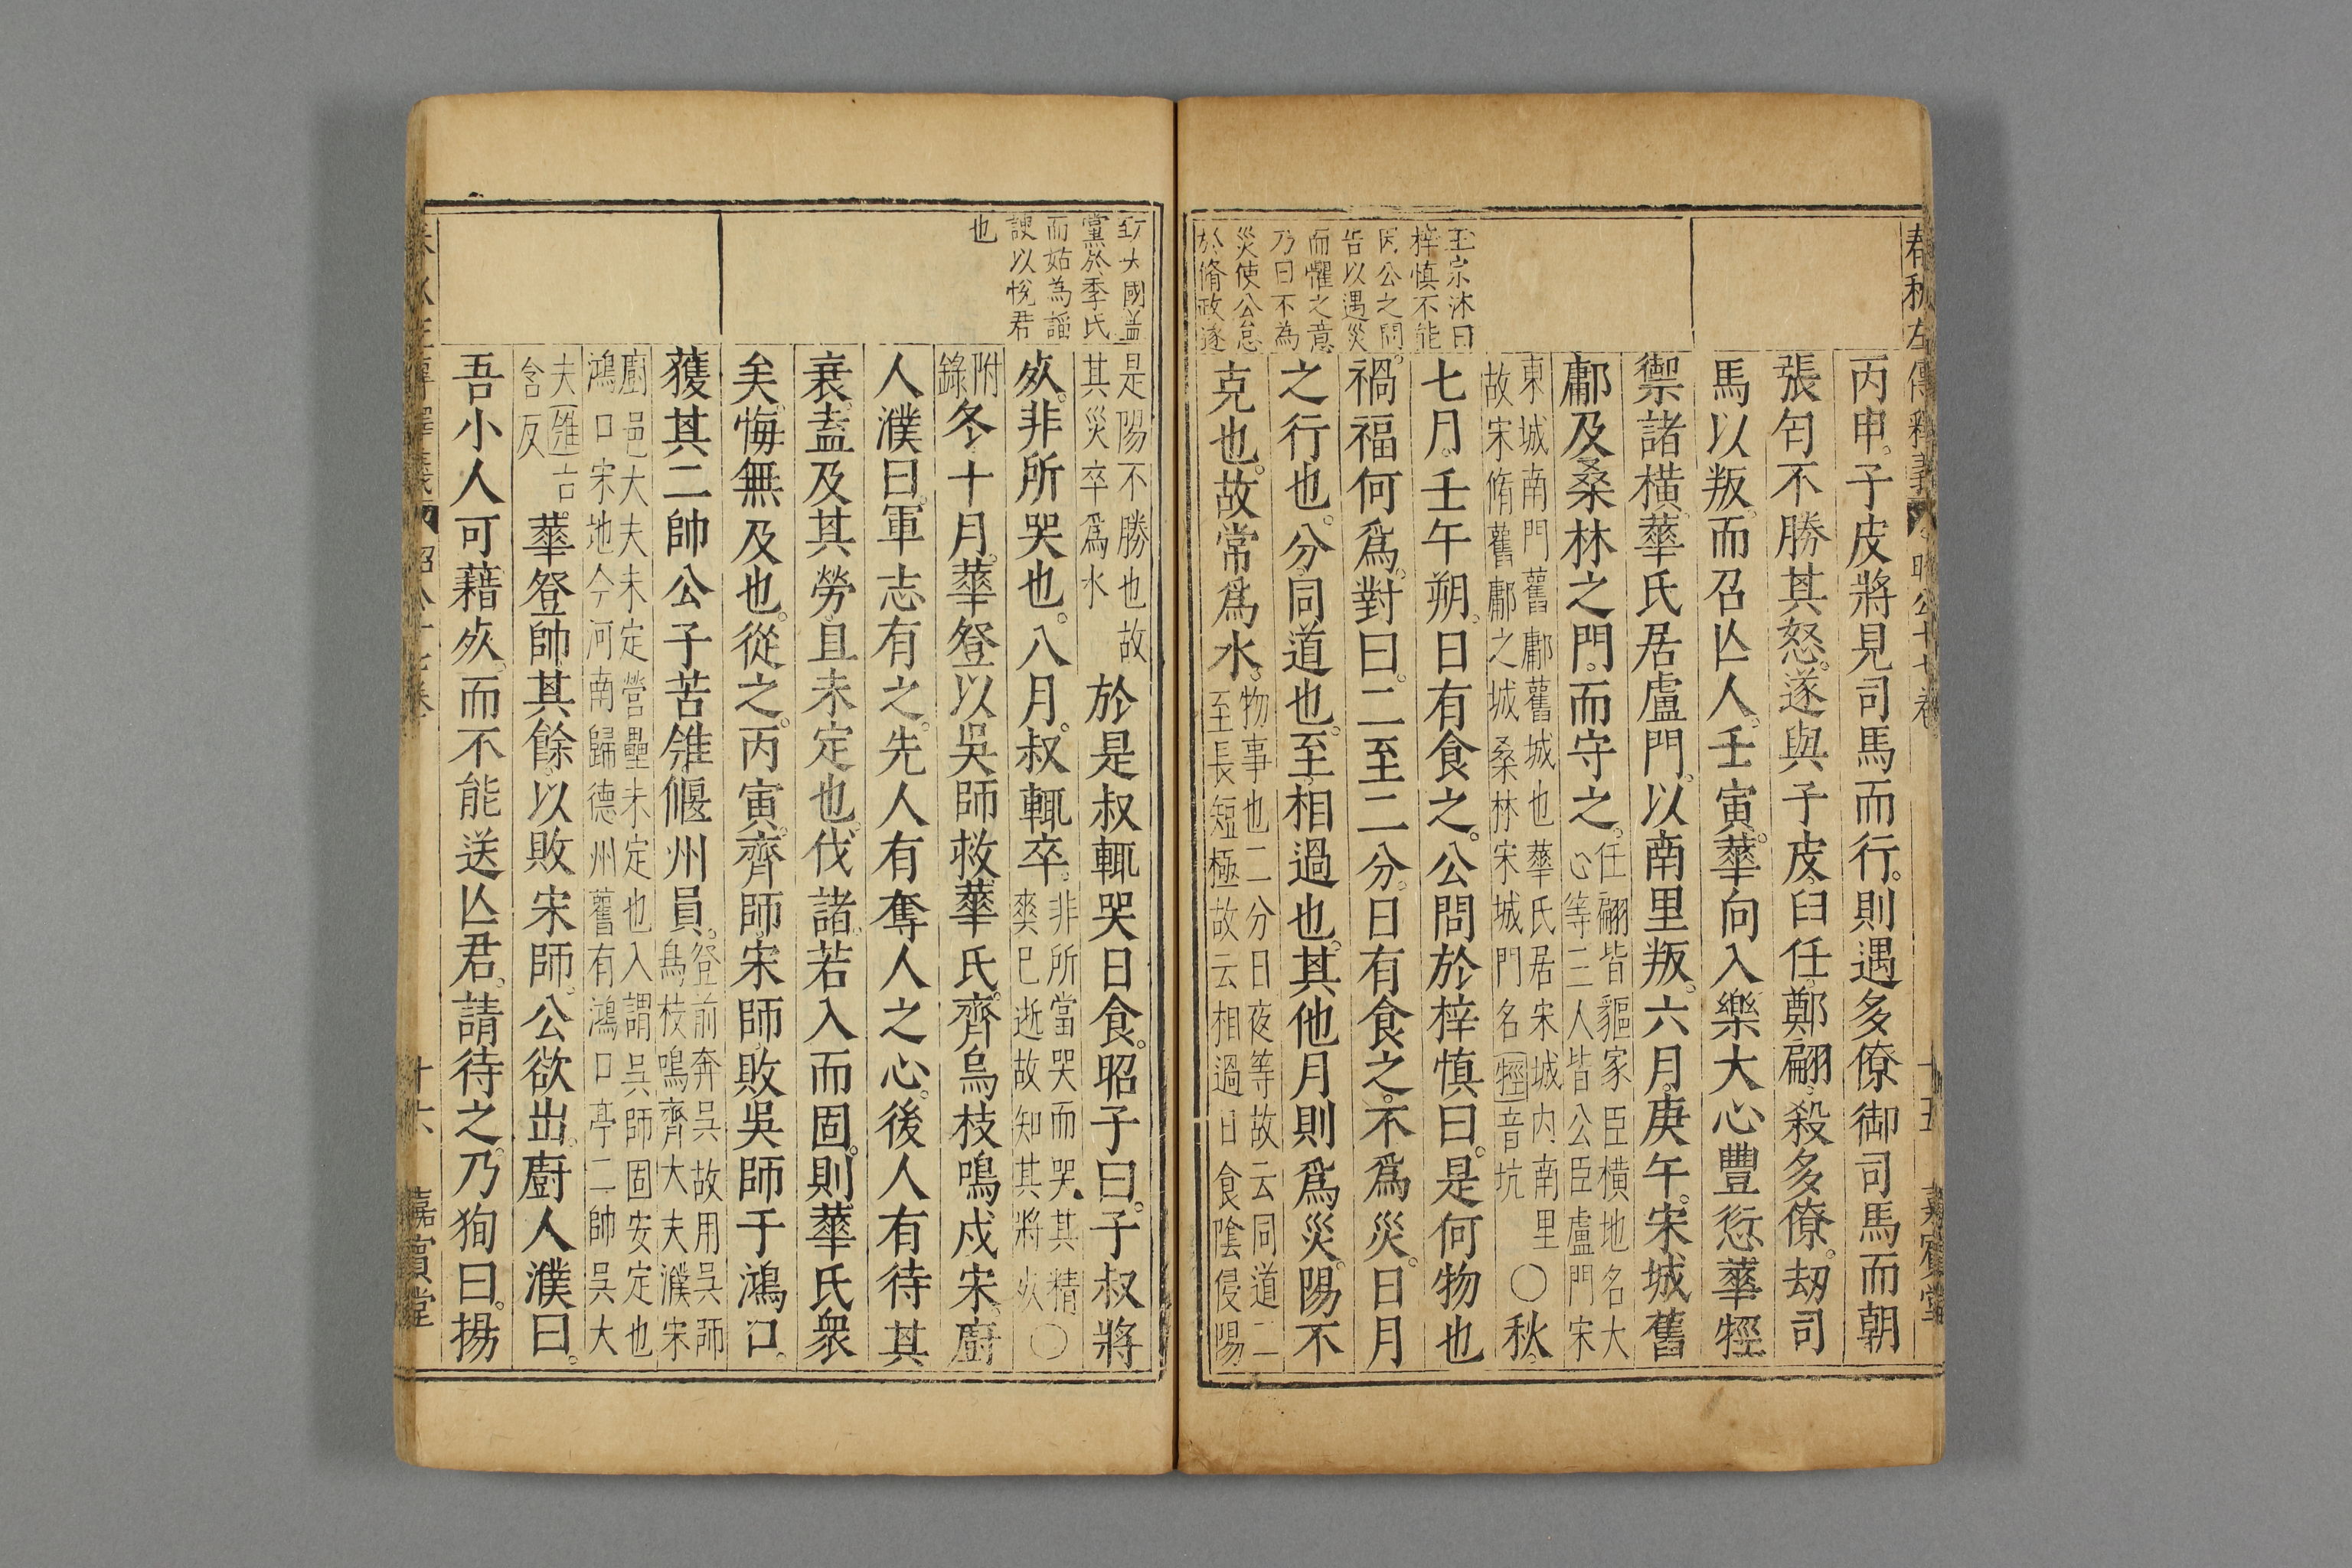 春秋左傳釋義 昭公十七卷 十五 嘉賓堂
丙申。子皮將見司馬而行。則遇多僚御司馬而朝
張匄不勝其怒。遂與子皮。臼任。鄭翩。殺多僚。刼司
馬以叛。而召亾人。壬寅。華向入樂大心豐愆華牼
禦諸橫。華氏居盧門。以南里叛。六月。庚午。宋城舊
鄘及桑林之門。而守之。
任翩皆貙家臣橫地名大
心等三人皆公臣盧門宋
東城南門舊鄘舊城也華氏居宋城内南里
故宋脩舊鄘之城桑林宋城門名牼音坑
〇秋。
七月。壬午朔。日有食之。公問於梓慎曰。是何物也
禍福何爲。對曰。二至二分。日有食之。不爲災。日月
之行也。分。同道也。至。相過也。其他月則爲災。陽不
克也。故常爲水。
物事也二分日夜等故云同道二
至長短極故云相過日食陰侵陽
王宗沐曰
梓慎不能
因公之問
告以遇災
而懼之意
乃曰不為
災使公怠
於脩政遂
至大國益
黨於季氏
而姑為謡
諛以悅君
也
是陽不勝也故
其災卒爲水
於是叔輒哭日食。昭子曰。子叔將
死。非所哭也。八月。叔輒卒。
非所當哭而哭其精
爽已逝故知其將死
〇
附錄
冬十月。華登以吳師救華氏。齊烏枝鳴戍宋。廚
人濮曰。軍志有之。先人有奪人之心。後人有待其
衰。盍及其勞且未定也。伐諸。若入而固。則華氏衆
矣。悔無及也。從之。丙寅。齊師宋師敗吳師于鴻口。
獲其二帥公子苦雂偃州員。
登前奔吳故用吳師
烏枝鳴齊大夫濮宋
廚邑大夫未定營壘未定也入謂吳師固安定也
鴻口宋地今河南歸德州舊有鴻口亭二帥吳大
夫雂古
含反
華登帥其餘。以敗宋師。公欲出。廚人濮曰。
吾小人可藉死。而不能送亾君。請待之。乃狥曰。揚
十六 嘉賓堂